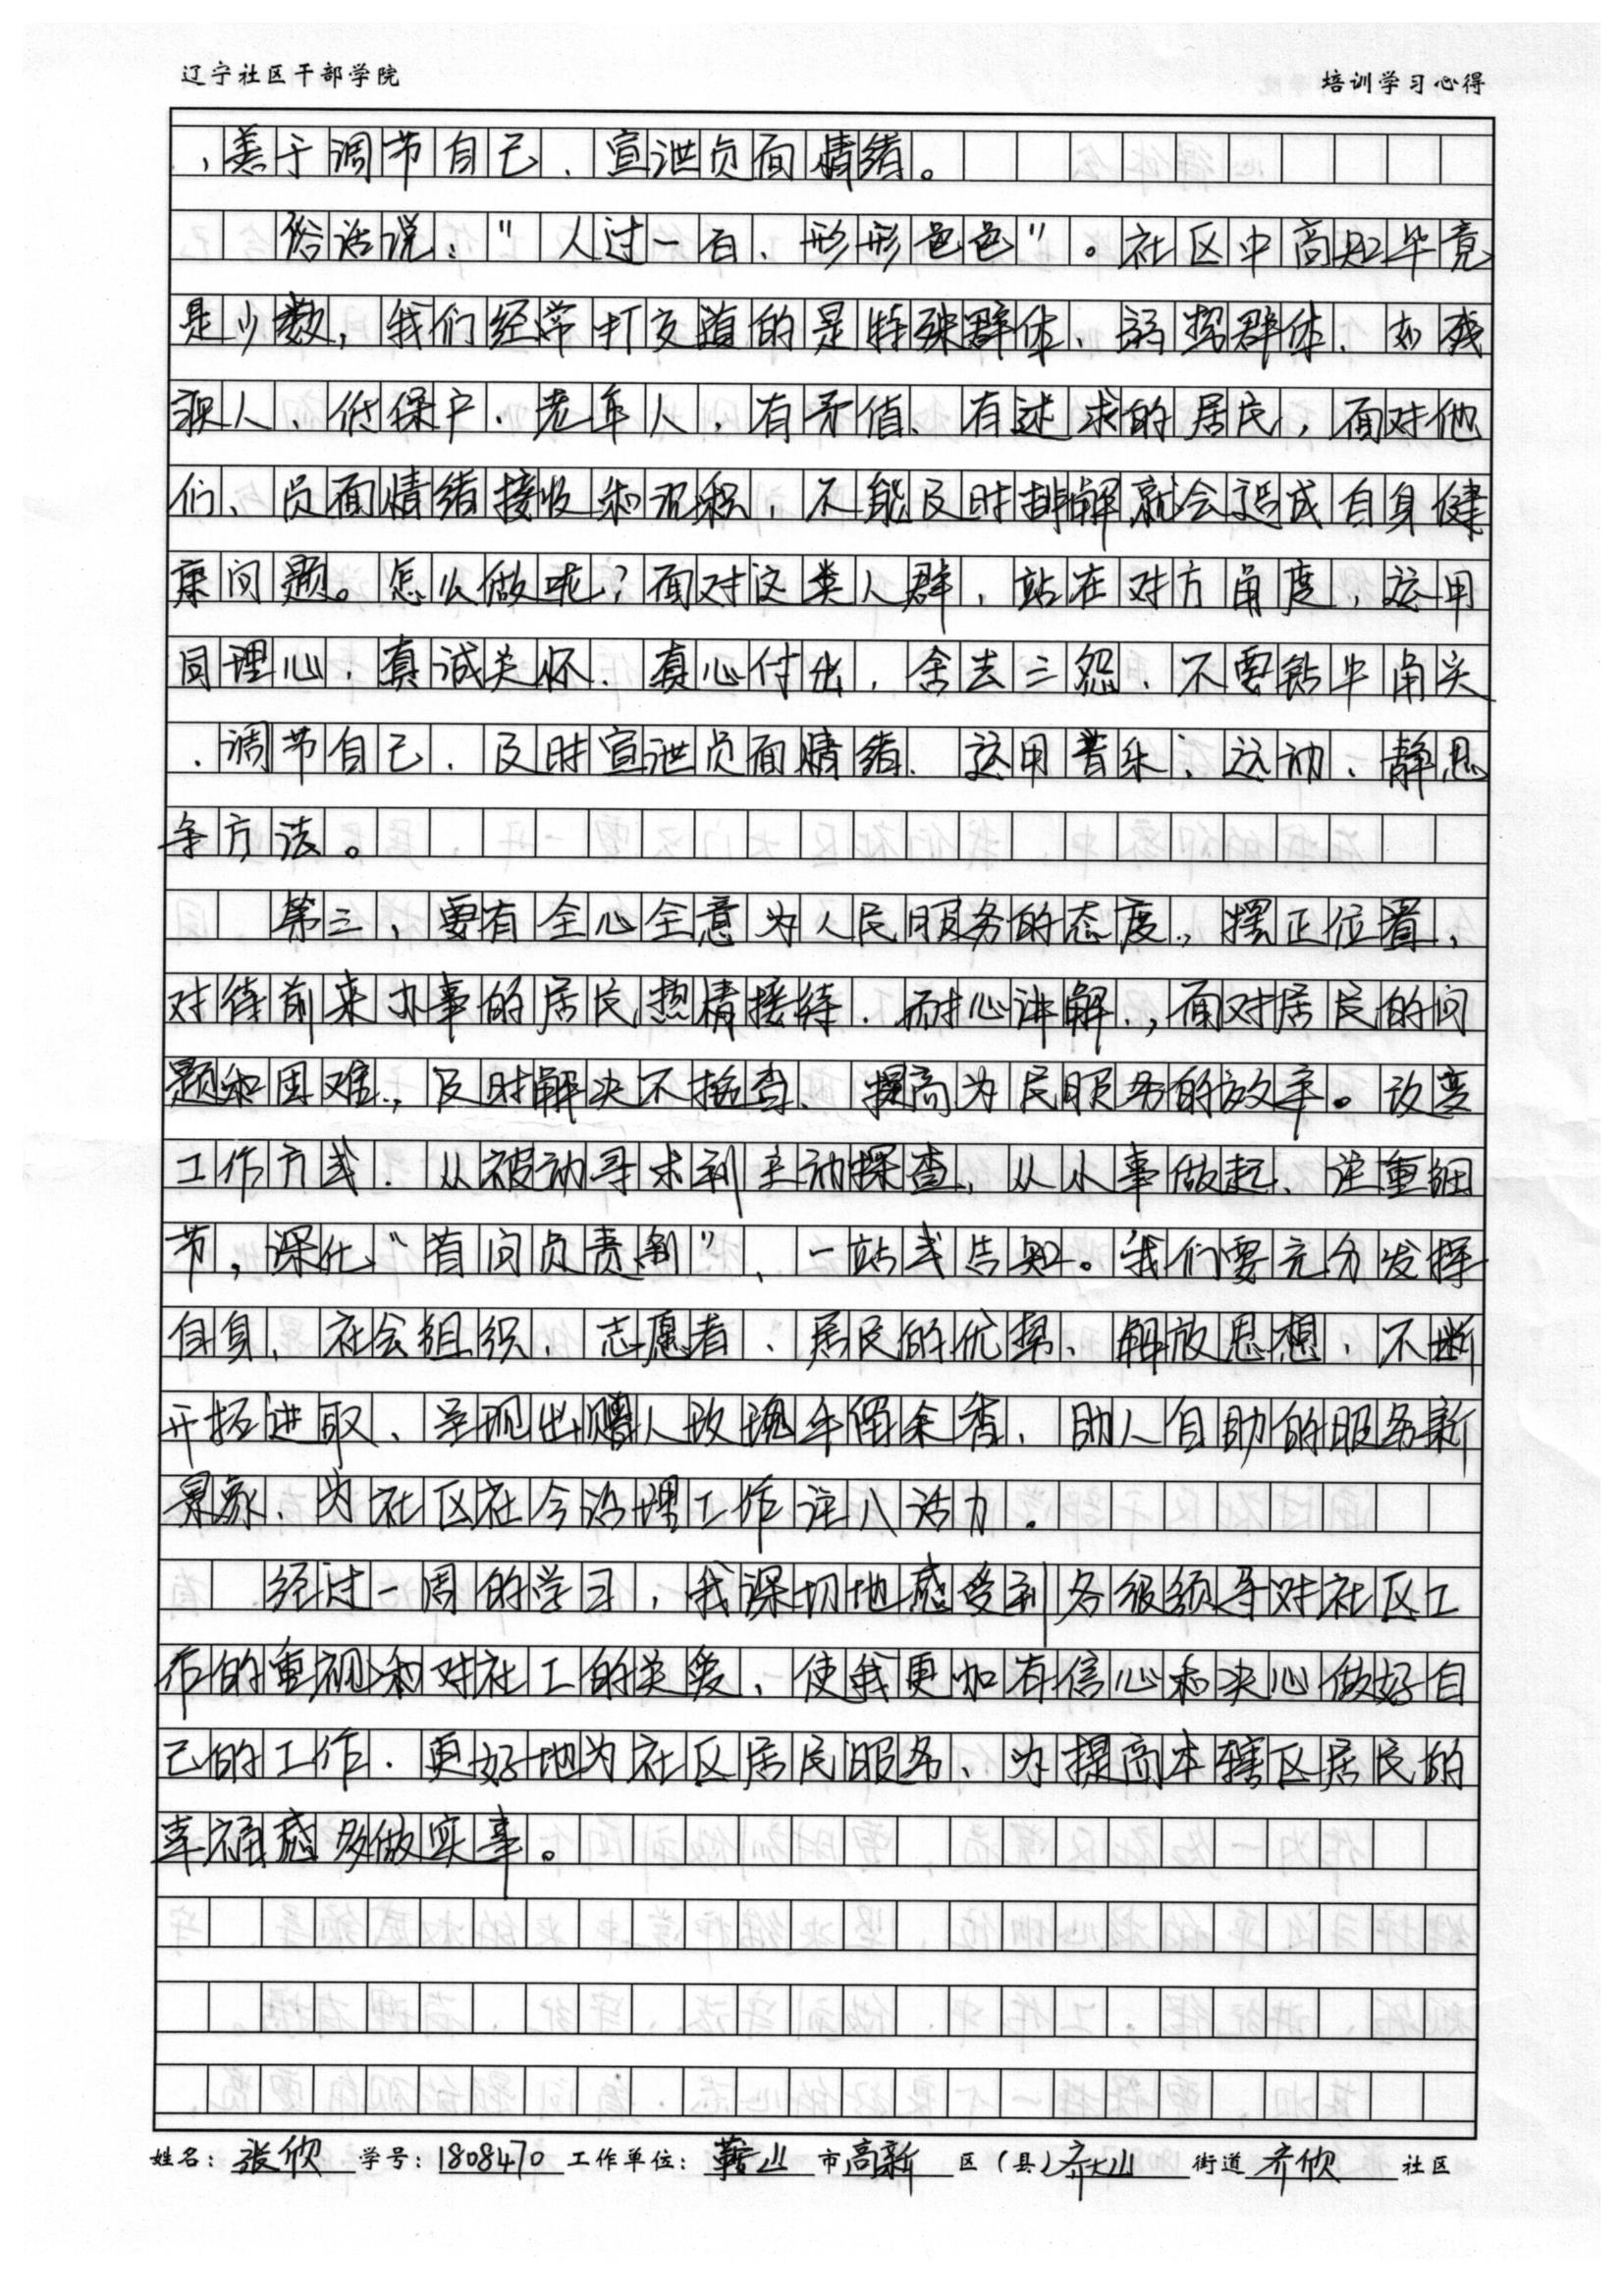 辽宁社区干部学院 培训学习心得
,善于调节自己、宣泄负面情绪。
俗话说:"人过一百、形形色色"。社区中高知毕竟
是少数,我们经常打交道的是特殊群体、弱势群体、如残
疾人、低保户、老年人,有矛盾、有诉求的居民,面对他
们、负面情绪接收和沉积,不能及时排解就会造成自身健
康问题。怎么做呢?面对这类人群,站在对方角度,运用
同理心、真诚关怀、真心付出,舍去三怨、不要钻牛角尖
、调节自己、及时宣泄负面情绪、运用音乐、运动、静思
等方法。
第三,要有全心全意为人民服务的态度,摆正位置,
对待前来办事的居民热情接待、耐心讲解,面对居民的问
题和困难,及时解决不拖沓、提高为民服务的效率。改变
工作方式、从被动寻求到主动探查、从小事做起、注重细
节,深化"首问负责制"、一站式告知。我们要充分发挥
自身、社会组织、志愿者、居民的优势、解放思想、不断
开拓进取、呈现出赠人玫瑰手留余香、助人自助的服务新
景象、为社区社会治理工作注入活力。
经过一周的学习,我深切地感受到各级领导对社区工
作的重视和对社工的关爱、使我更加有信心和决心做好自
己的工作、更好地为社区居民服务、为提高本辖区居民的
幸福感多做实事。
姓名:张欣 学号:1808470 工作单位:鞍山市高新区(县)齐大山街道齐欣社区